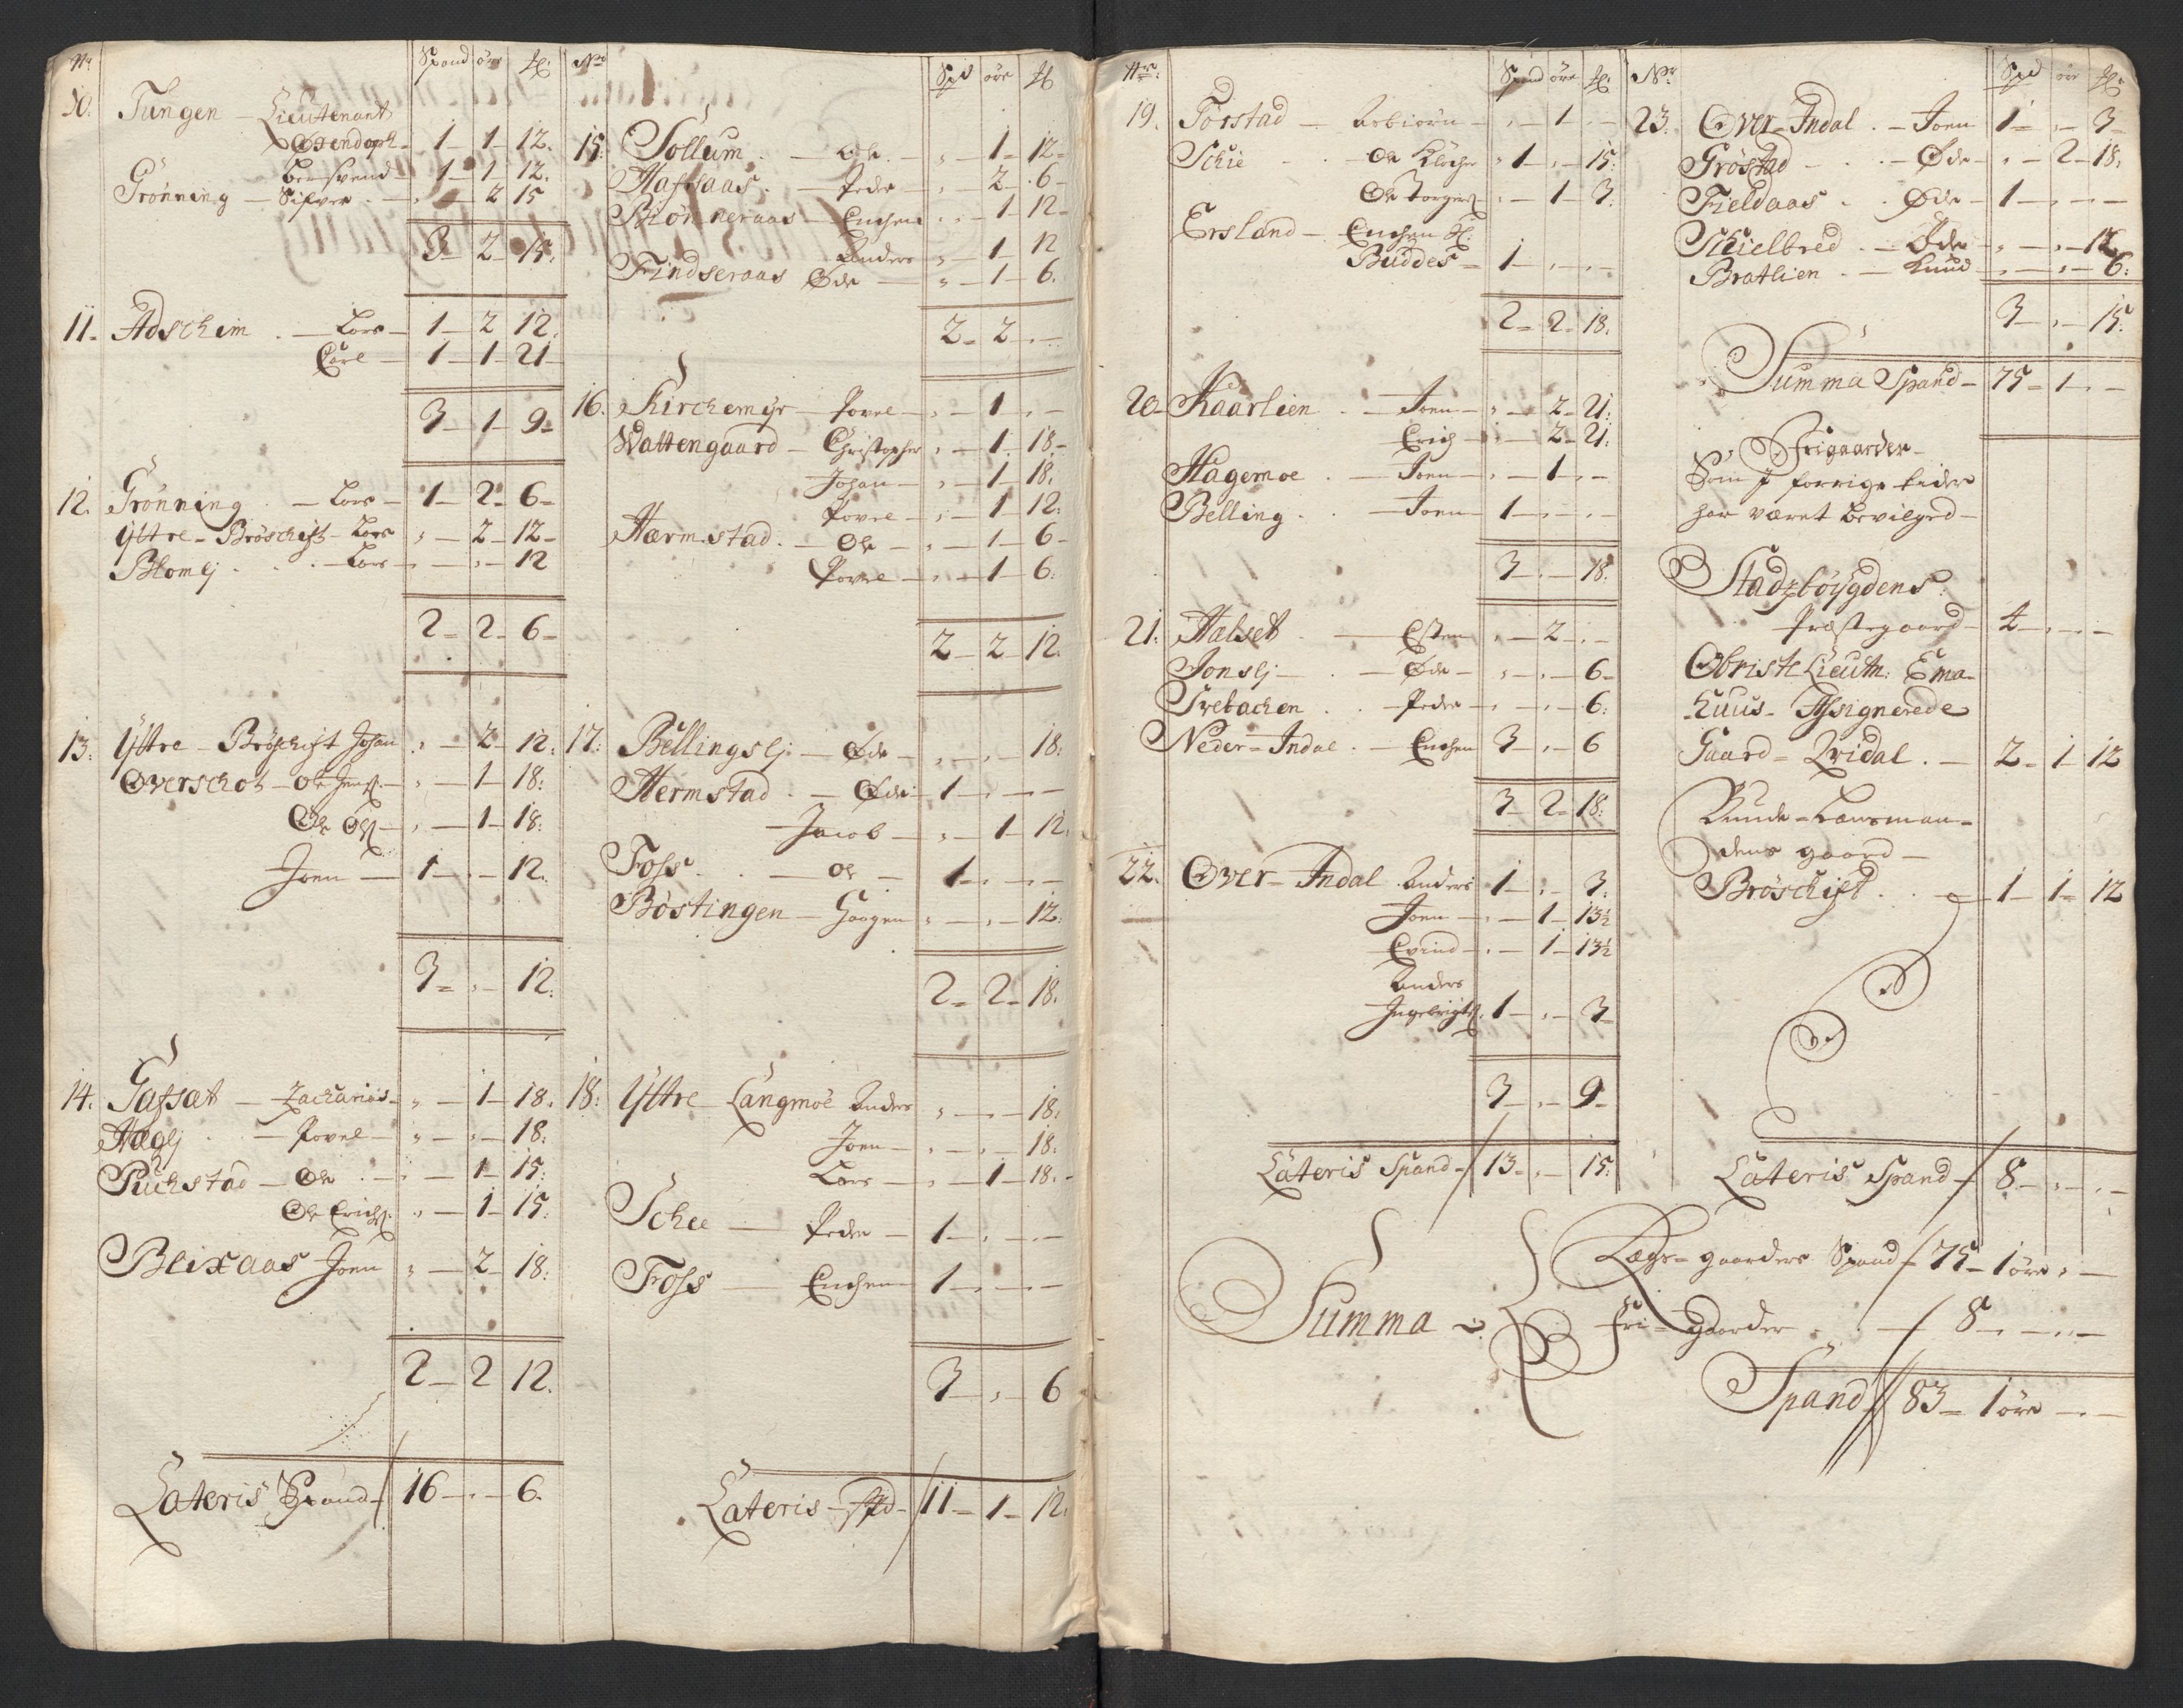 Nr. Spand öre
10. Tungen – Lieutenant
Ozendoph – 1 – 1 – 12.
Bersvend – 1 – 1 – 12.
Grönning – Sifver . – – 2 15
3 – 2 – 15.
11. Adscheim . – Lars – 1 – 2 12.
Carl – 1 – 1 – 21
3 – 1 – 9 –
12. Grönning . – Lars – 1 – 2 – 6 –
Yttre – Bröschift – Lars „ – 2 – 12 –
Blomlj . . . – Lars – „ – „ – 12
2 – 2 – 6 –
13. Yttre – Bröschift Johan „ – 2 – 12.
Overschot – Ole Jens. – „ – 1 – 18:
Ole Ols. – „ – 1 – 18:
Joen – 1 – „ – 12.
3 – „ – 12.
14. Gafsæt – Zacharias – „ – 1 – 18.
Haglj . – Povel – „ – „ – 18:
Puchstad – Ole . – „ – 1 – 15:
Ole Erichs. „ – 1 – 15.
Blixaas Joen „ – 2 – 18:
2 – 2 12.
Lateris Spand – 16 – „ – 6.
Nr. Spd öre
15. Sollum . – Ole . – „ – 1 – 12 –
Hafsaas . – Peder – „ – 2 – 6 –
Biönneraas – Enchen „ – 1 – 12 –
Anders „ – 1 – 12
Findseraas Øde – „ – 1 – 6.
2 – 2 – „ –
16. Kirchemyr – Povel – „ – 1 „ –
Wattengaard – Christopher „ – 1 – 18. –
Johan – „ – 1 – 18.
Povel – „ – 1 – 12:
Hærmstad . – Ole – „ – 1 – 6 –
Povel – „ – 1 – 6:
2 – 2 – 12.
17: Bellingslj – Øde – „ – „ – 18:
Hermstad . – Øde 1 – „ – –
Jacob – „ – 1 – 12.
Foss . . – Ole – 1 – „ – –
Böstingen – Haagen „ – „ – 12:
2 – 2 – 18.
18: Yttre Langmoe Anders „ – „ – 18:
Joen – „ – „ – 18:
Lars – „ – 1 – 18. –
Schee – Peder – 1 – „ – –
Foss – Enchen – 1 – „ – –
3 – „ – 6
Lateris – Spd – 11 – 1 – 12.
Nr. Spand öre
19. Forstad – Asbiörn – „ – 1 –
Schie . . – Ole Klocher „ 1 – „ – 15:
Ole Torgers. „ – 1 3.
Ersland – Enchen Sl.
Buddes – 1 – „ – –
2 – 2 – 18.
20 – Kaarlien . – Joen – „ – 2 – 21:
Erich – „ – 2 – 21:
Hagemoe . – Joen – „ – 1 – „ –
Belling . . – Joen – 1 – „ – –
3 – „ – 18.
21. Halset . – Esten „ – 2 – „ –
Jonslj – . – Øde – „ – „ – 6 –
Trebachen . . – Peder – „ – „ – 6:
Neder – Indal . – Enchen 3 – „ – 6
3 – 2 – 18:
22. Over – Indal . Anders 1 – „ – 3:
Joen – „ – 1 – 13½
Evind – „ – 1 – 13½
Anders
Ingebrigts. 1 – „ – 3 –
3 – „ – 9 –
Lateris Spand – 13 – „ – 15:
Nr. Spd öre
23. Over – Indal . – Joen 1 – „ – 3 –
Gröstad – . . – Øde – „ – 2 – 18.
Fieldaas . . Øde – 1 – „ – –
Schielbred . – Øde – „ – „ – 12
Bratlien . – Knud – „ – „ – 6:
3 – „ – 15.
Summa Spand – 75 – 1 – „ –
Frigaarder –
Som J forrige tider
har været bevilged –
Stadzböÿgdens
Præstegaard – 4 – „ – –
Obriste Lieutn: Ema –
huus – Assignerede
Gaard – Qvidal . – 2 – 1 – 12
Bunde – Lansman –
dens gaard –
Bröschift . . – 1 – 1 – 12
Lateris Spand – 8 – „ – „ –
Summa – Lægs – gaarders Spand – 75 – 1 öre „ –
Fri – gaarder . . – 8 – „ – „ –
Spand 83 – 1 öre – „ –